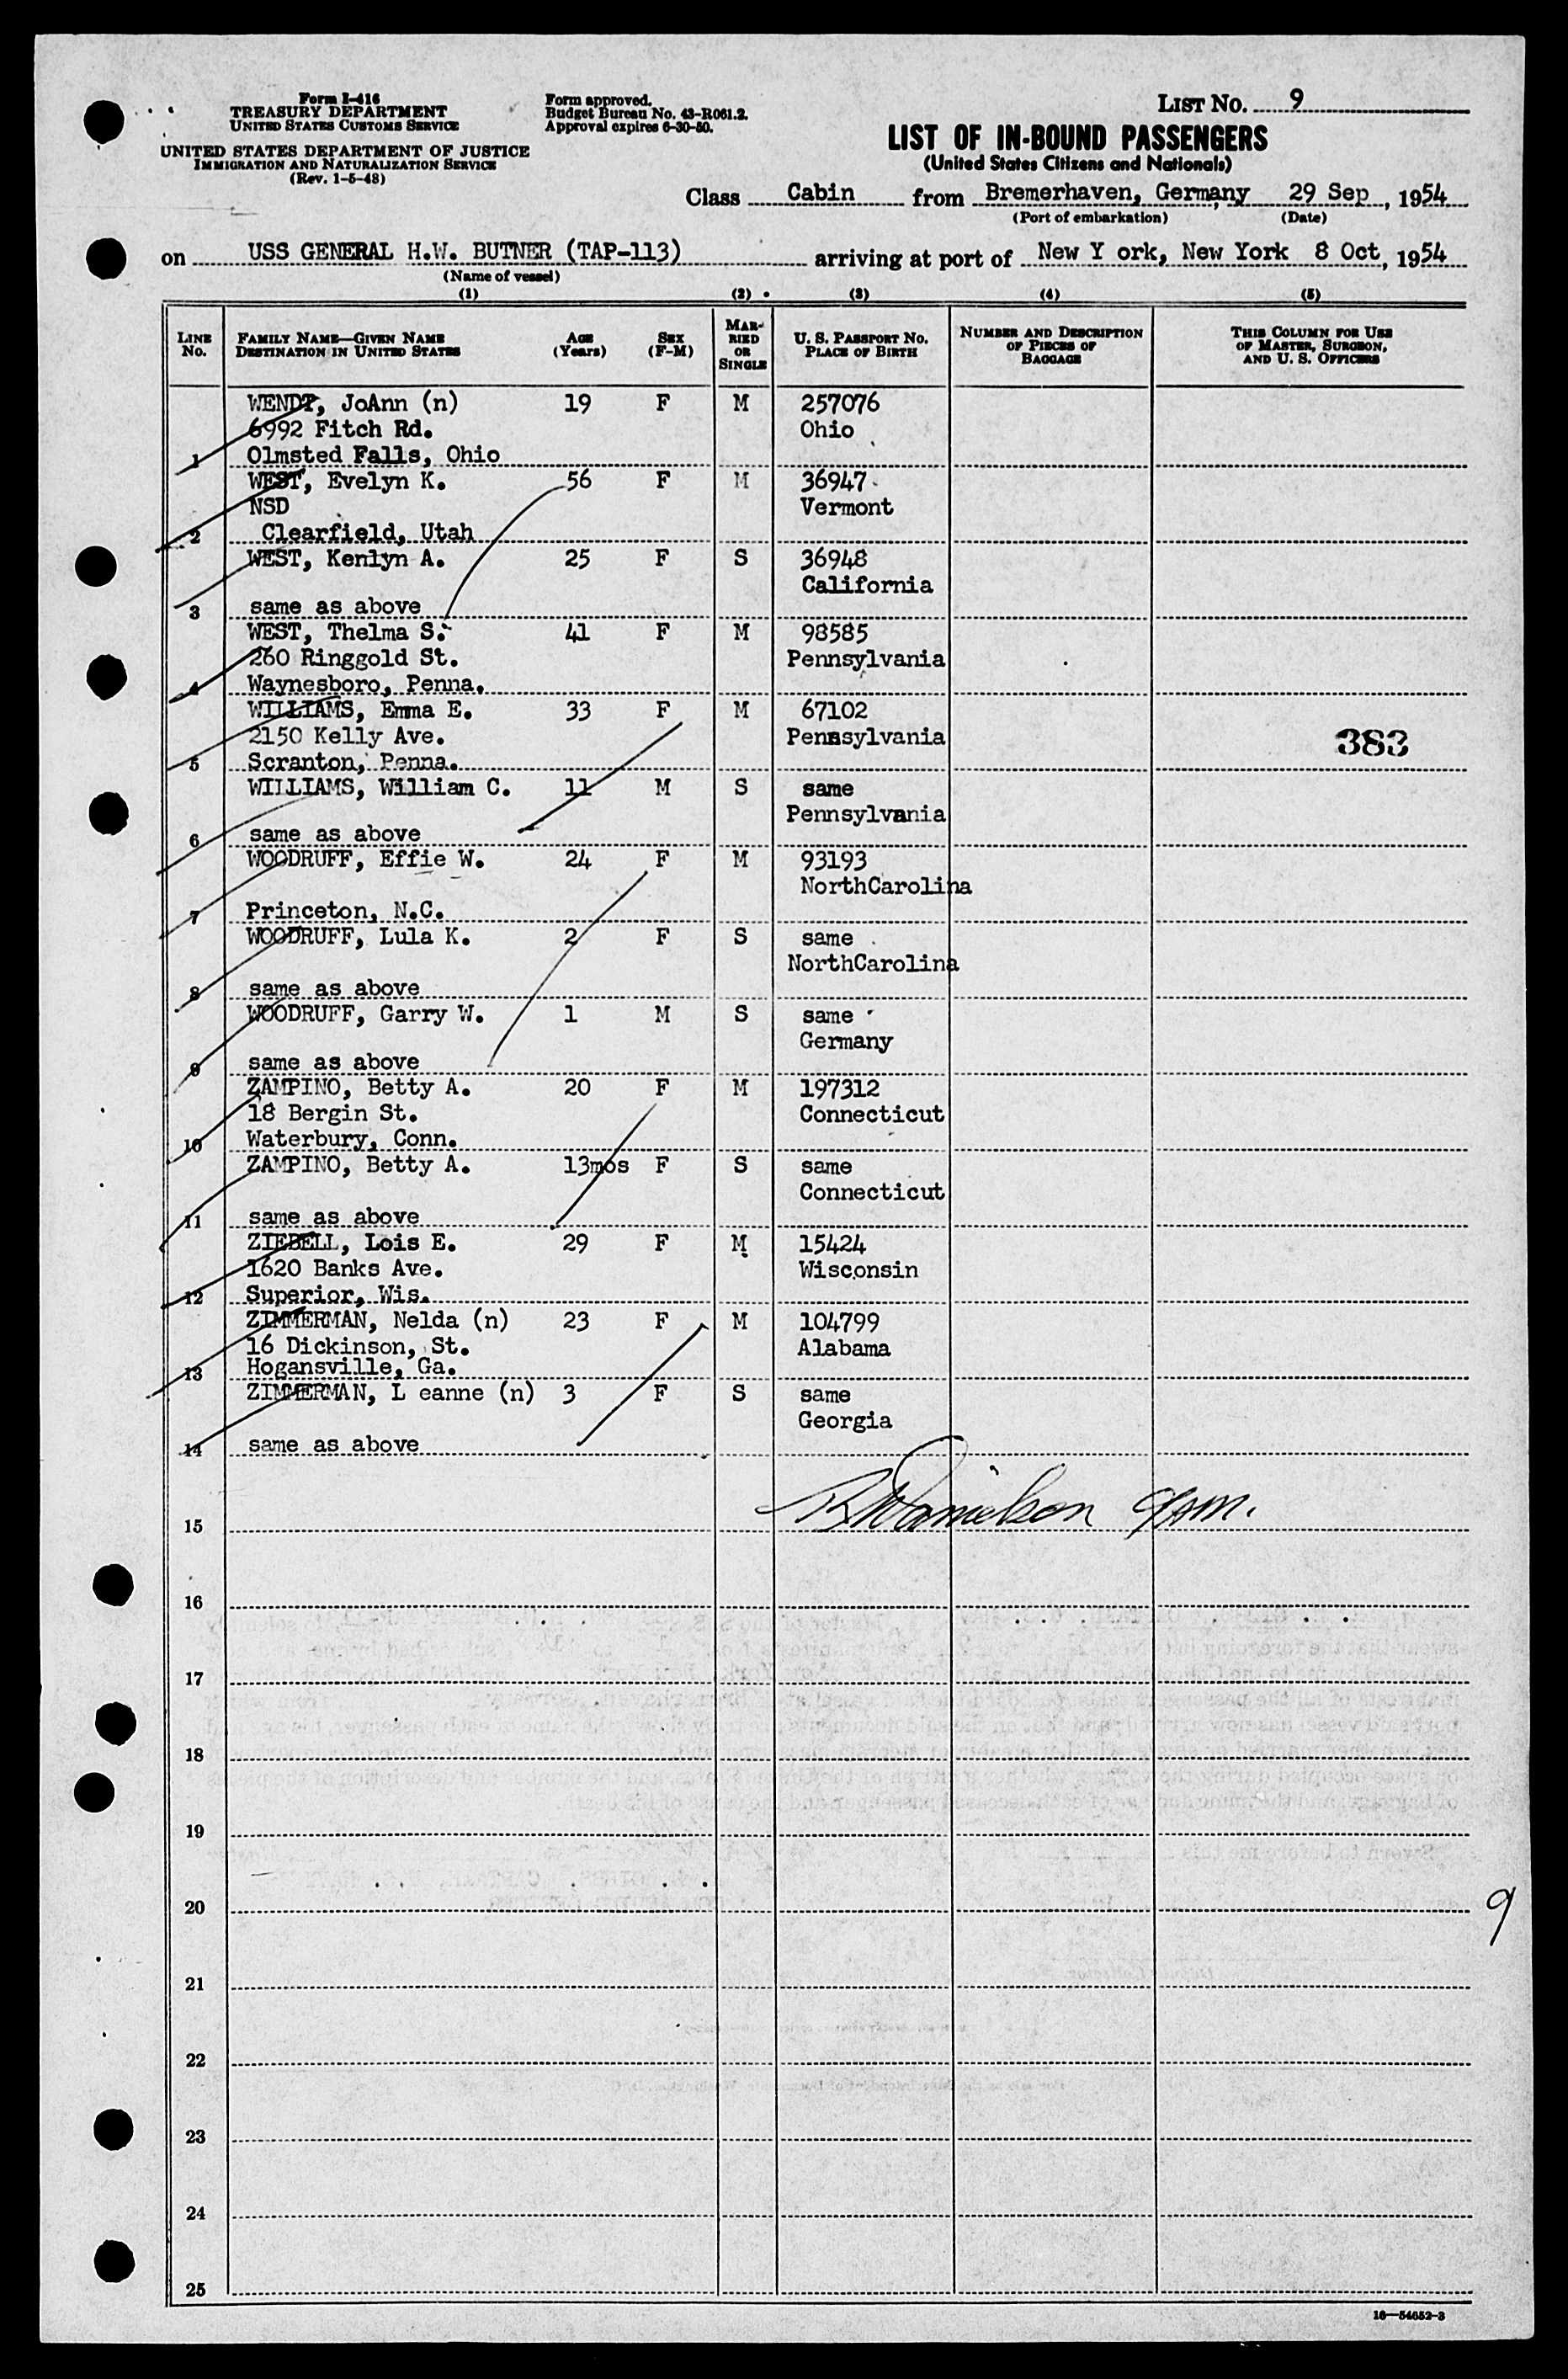 Form I-416
TREASURY DEPARTMENT
UNITED STATES CUSTOMS SERVICE
UNITED STATES DEPARTMENT OF JUSTICE
IMMIGRATION AND NATURALIZATION SERVICE
(Rev. 1-5-48)
Form approved.
Budget Bureau No. 43-R061.2.
Approval expires 6-30-50.
LIST NO. 9
LIST OF IN-BOUND PASSENGERS
(United States Citizens and Nationals)
Class Cabin from Bremerhaven, Germany, 29 Sep, 1954
(Port of embarkation) (Date)
on USS GENERAL H.W. BUTNER (TAP-113) arriving at port of New Y ork, New York 8 Oct, 1954
(Name of vessel)
(1) (2) (3) (4) (5)
LINE NO. FAMILY NAME—GIVEN NAME DESTINATION IN UNITED STATES AGE (Years) SEX (F-M) MARRIED OR SINGLE U. S. PASSPORT NO. PLACE OF BIRTH NUMBER AND DESCRIPTION OF PIECES OF BAGGAGE THIS COLUMN FOR USE OF MASTER, SURGEON, AND U. S. OFFICERS
WENDT, JoAnn (n) 19 F M 257076
6992 Fitch Rd. Ohio
1 Olmsted Falls, Ohio
WEST, Evelyn K. 56 F M 36947
NSD Vermont
2 Clearfield, Utah
WEST, Kenlyn A. 25 F S 36948
California
3 same as above
WEST, Thelma S. 41 F M 98585
260 Ringgold St. Pennsylvania
4 Waynesboro, Penna.
WILLIAMS, Emma E. 33 F M 67102
2150 Kelly Ave. Pennsylvania 383
5 Scranton, Penna.
WILLIAMS, William C. 11 M S same
Pennsylvania
6 same as above
WOODRUFF, Effie W. 24 F M 93193
NorthCarolina
7 Princeton, N.C.
WOODRUFF, Lula K. 2 F S same
NorthCarolina
8 same as above
WOODRUFF, Garry W. 1 M S same
Germany
9 same as above
ZAMPINO, Betty A. 20 F M 197312
18 Bergin St. Connecticut
10 Waterbury, Conn.
ZAMPINO, Betty A. 13mos F S same
Connecticut
11 same as above
ZIEBELL, Lois E. 29 F M 15424
1620 Banks Ave. Wisconsin
12 Superior, Wis.
ZIMMERMAN, Nelda (n) 23 F M 104799
16 Dickinson, St. Alabama
13 Hogansville, Ga.
ZIMMERMAN, L eanne (n) 3 F S same
Georgia
14 same as above
15
16
17
18
19
20
9
21
22
23
24
25
16—54652-3